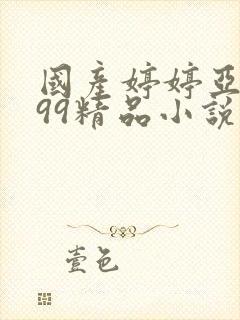 國產婷婷亞
99精品小說
壹色